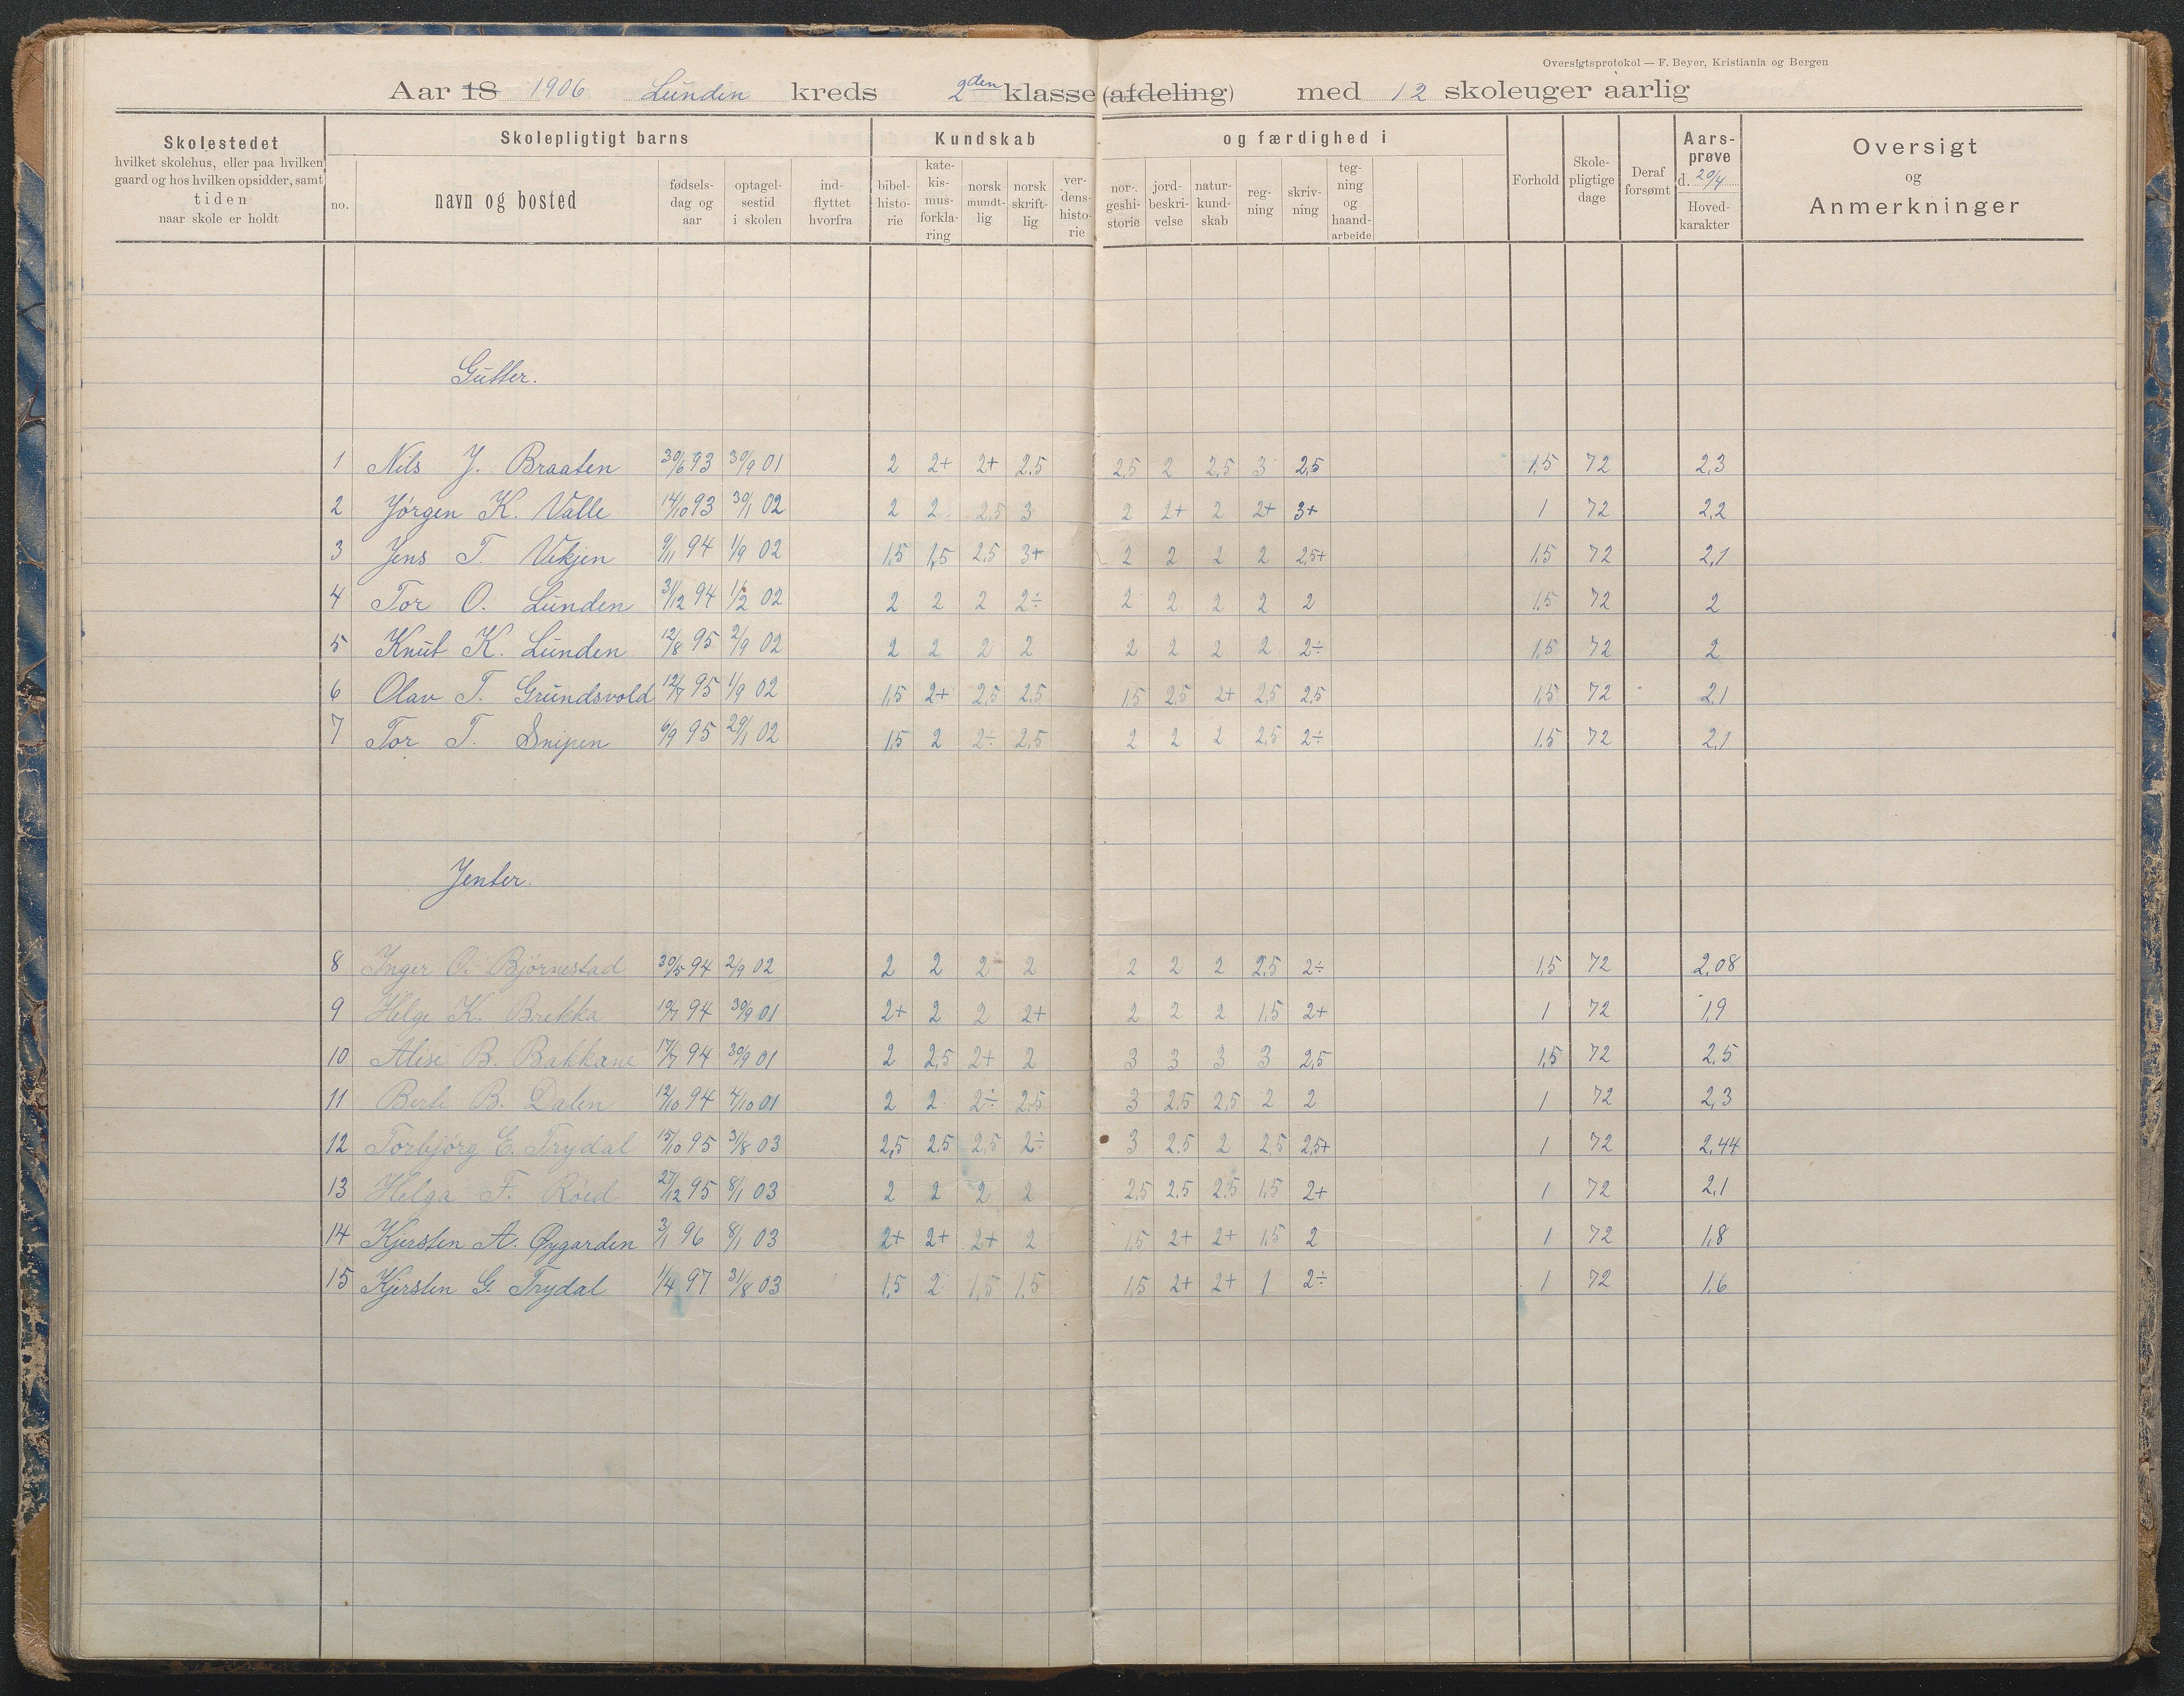 Oversigtsprotokol — F. Beyer, Kristiania og Bergen
Aar 18 1906 Lunden kreds 2den klasse (afdeling) med 12 skoleuger aarlig
Skolestedet
hvilket skolehus, eller paa hvilken
gaard og hos hvilken opsidder, samt
tiden
naar skole er holdt
Skolepligtigt barns
no.
navn og bosted
fødsels-
dag og
aar
optagel-
sestid
i skolen
ind-
flyttet
hvorfra
Kundskab
bibel-
histo-
rie
kate-
kis-
mus-
forkla-
ring
norsk
mundt-
lig
norsk
skrift-
lig
ver-
dens-
histo-
rie
og færdighed i
nor-
geshi-
storie
jord-
beskri-
velse
natur-
kund-
skab
reg-
ning
skriv-
ning
teg-
ning
og
haand-
arbeide
Forhold
Skole-
pligtige
dage
Deraf
forsømt
Aars-
prøve
d. 20/4
Hoved-
karakter
Oversigt
og
Anmerkninger
Gutter.
1 Nils J. Braaten 30/6 93 30/9 01 2 2+ 2+ 2.5 2.5 2 2,5 3 2,5 1,5 72 2,3
2 Jørgen K. Valle 14/10 93 30/1 02 2 2 2,5 3 2 2+ 2 2+ 3+ 1 72 2,2
3 Jens T. Vekjen 9/11 94 1/9 02 1,5 1,5 2,5 3+ 2 2 2 2 2,5+ 1,5 72 2,1
4 Tor O. Lunden 31/12 94 1/2 02 2 2 2 2÷ 2 2 2 2 2 1,5 72 2
5 Knut K. Lunden 12/8 95 2/9 02 2 2 2 2 2 2 2 2 2÷ 1,5 72 2
6 Olav T. Grundsvold 12/7 95 1/9 02 1,5 2+ 2,5 2,5 1,5 2,5 2+ 2,5 2,5 1,5 72 2,1
7 Tor T. Snipen 6/9 95 29/1 02 1,5 2 2÷ 2,5 2 2 2 2,5 2÷ 1,5 72 2,1
Jenter.
8 Inger O. Bjørnestad 30/5 94 2/9 02 2 2 2 2 2 2 2 2,5 2÷ 1,5 72 2,08
9 Helge K. Brekka 19/7 94 30/9 01 2+ 2 2 2+ 2 2 2 1,5 2+ 1 72 1,9
10 Alise B. Bakkane 17/7 94 30/9 01 2 2,5 2+ 2 3 3 3 3 2,5 1,5 72 2,5
11 Berte B. Dalen 12/10 94 4/10 01 2 2 2÷ 2,5 3 2,5 2,5 2 2 1 72 2,3
12 Torbjørg E. Trydal 15/10 95 31/8 03 2,5 2,5 2,5 2÷ 3 2,5 2 2,5 2,5+ 1 72 2,44
13 Helga F. Röed 27/12 95 8/1 03 2 2 2 2 2,5 2,5 2,5 1,5 2+ 1 72 2,1
14 Kjersten A. Øygarden 3/1 96 8/1 03 2+ 2+ 2+ 2 1,5 2+ 2+ 1,5 2 1 72 1,8
15 Kjersten G. Trydal 1/4 97 31/8 03 1,5 2 1,5 1,5 1,5 2+ 2+ 1 2÷ 1 72 1,6